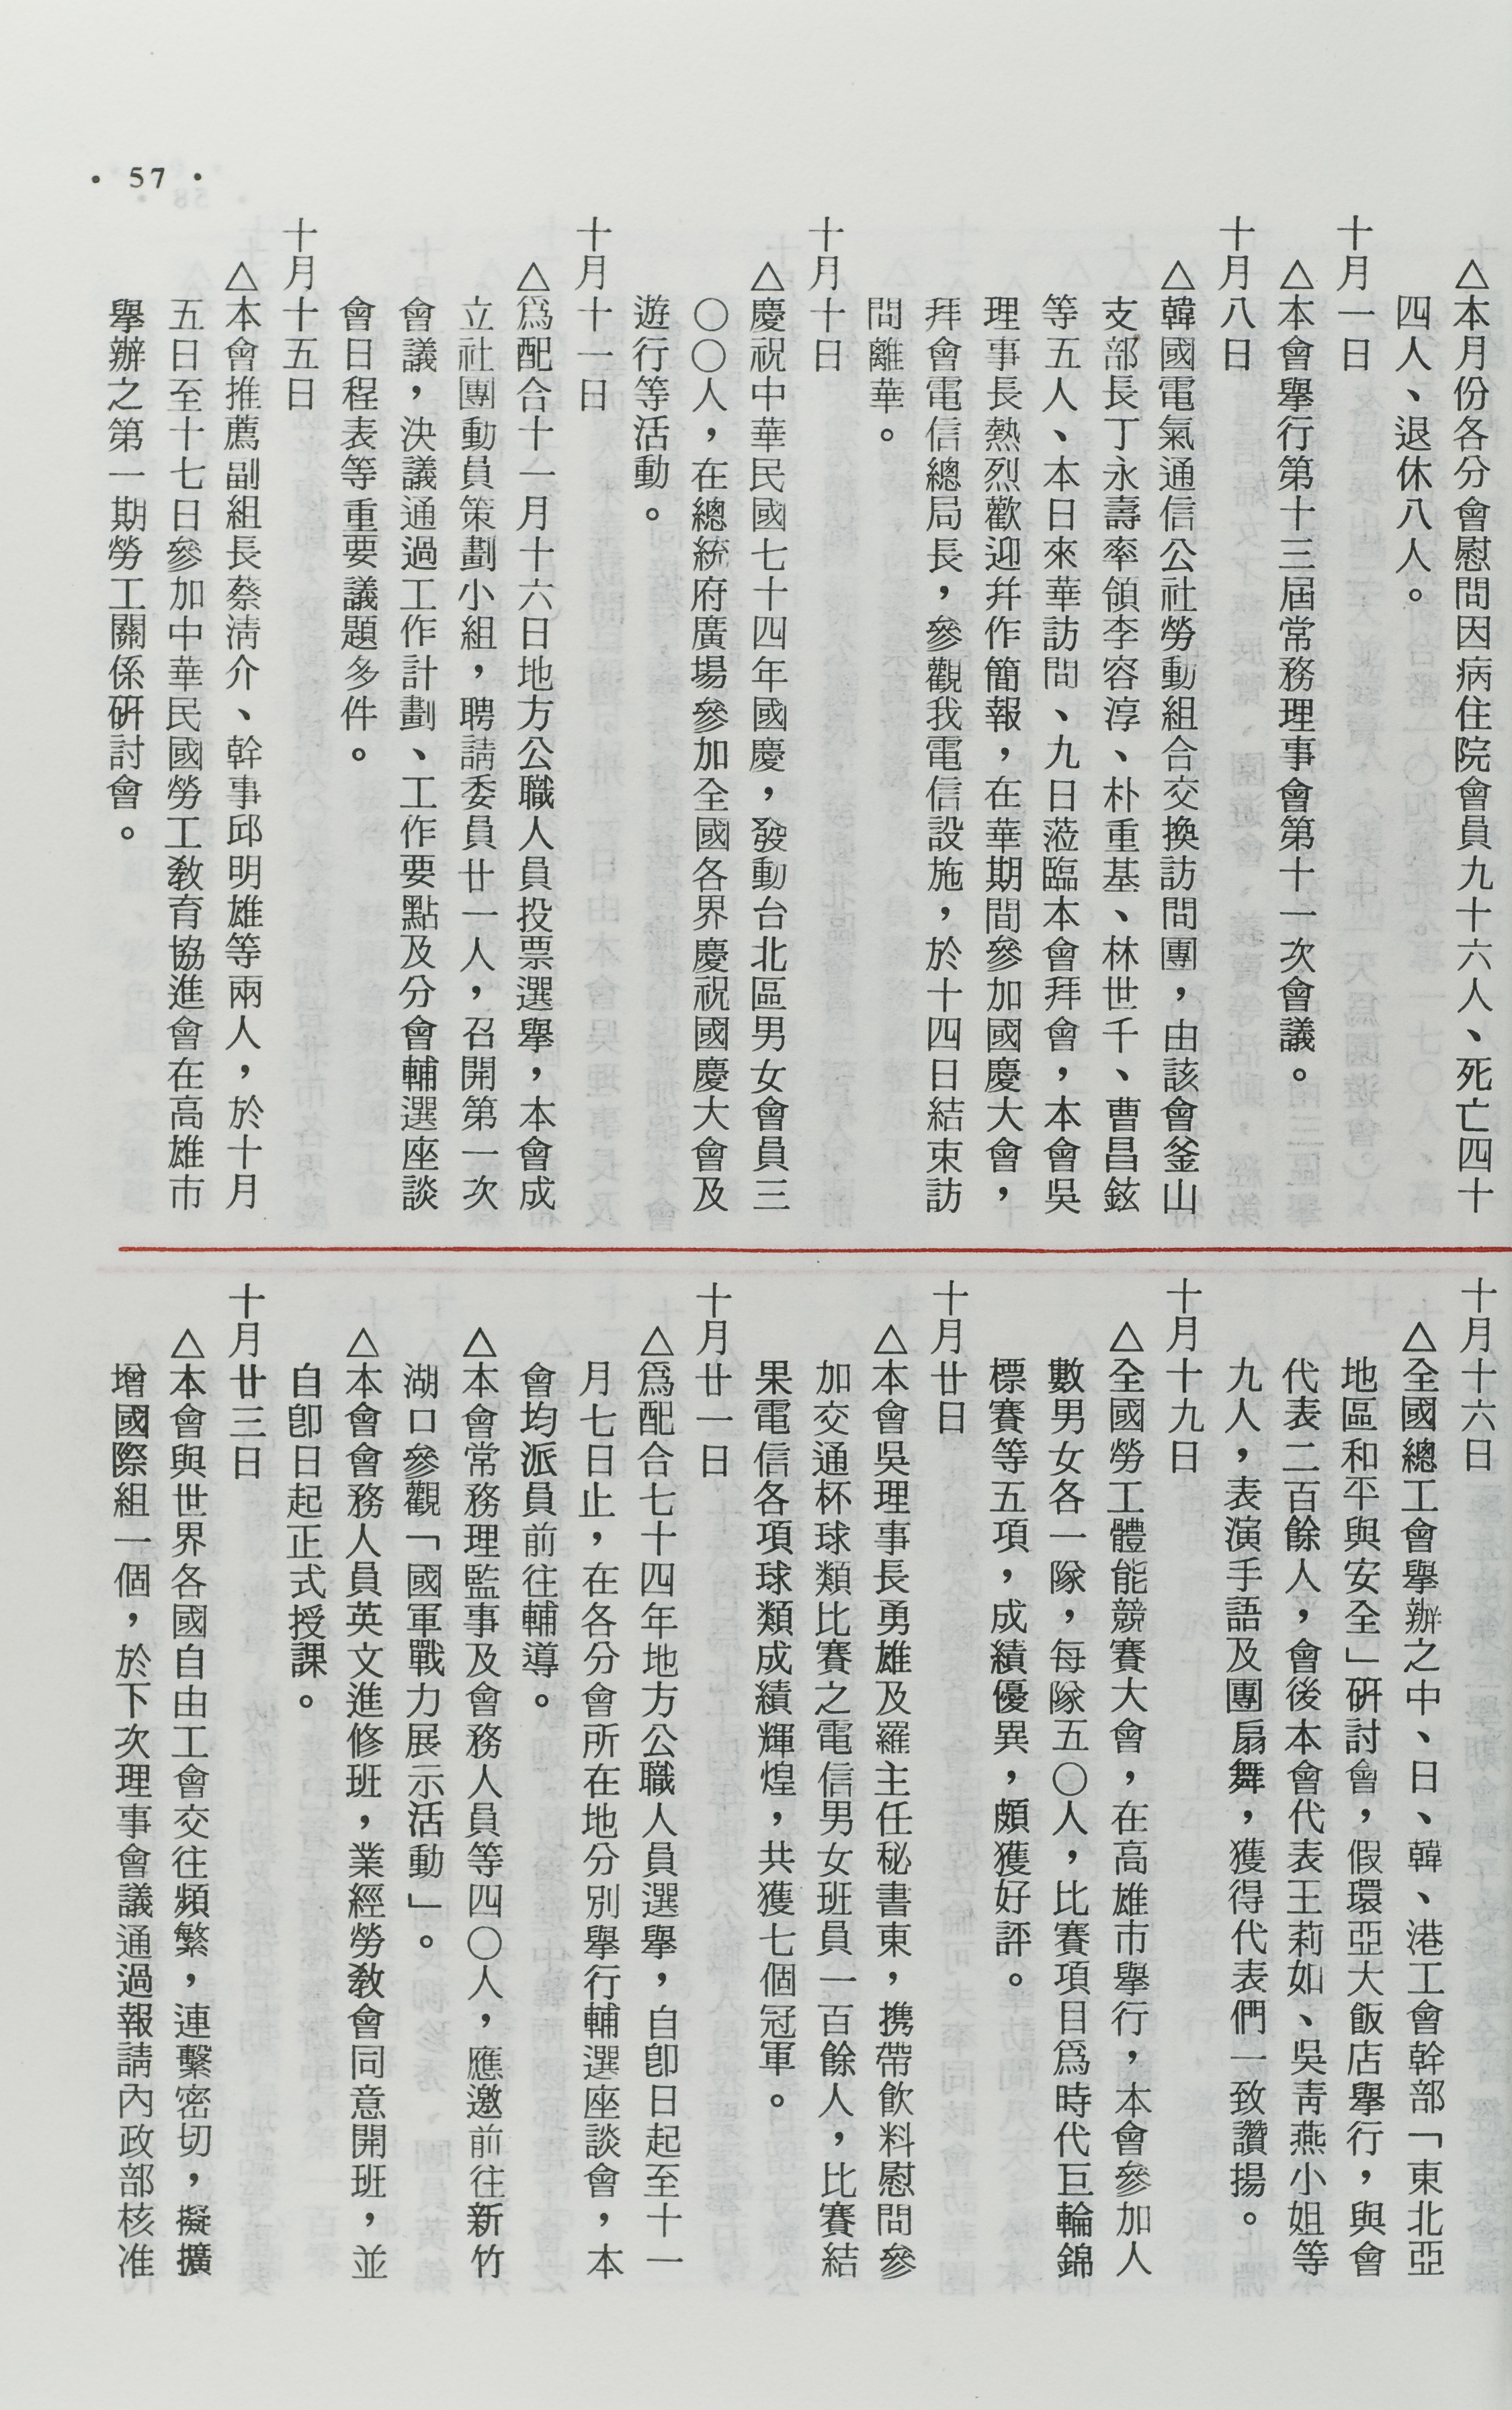 △本月份各分會慰問因病住院會員九十六人、死亡四十
四人、退休八人。
十月一日
△本會舉行第十三屆常務理事會第十一次會議。
十月八日
△韓國電氣通信公社勞動組合交換訪問團，由該會釜山
支部長丁永壽率領李容淳、朴重基、林世千、曹昌鉉
等五人、本日來華訪問、九日蒞臨本會拜會，本會吳
理事長熱烈歡迎幷作簡報，在華期間參加國慶大會，
拜會電信總局長，參觀我電信設施，於十四日結束訪
問離華。
十月十日
△慶祝中華民國七十四年國慶，發動台北區男女會員三
〇〇人，在總統府廣場參加全國各界慶祝國慶大會及
遊行等活動。
十月十一日
△爲配合十一月十六日地方公職人員投票選舉，本會成
立社團動員策劃小組，聘請委員廿一人，召開第一次
會議，決議通過工作計劃、工作要點及分會輔選座談
會日程表等重要議題多件。
十月十五日
△本會推薦副組長蔡淸介、幹事邱明雄等兩人，於十月
五日至十七日參加中華民國勞工敎育協進會在高雄市
舉辦之第一期勞工關係硏討會。
十月十六日
△全國總工會舉辦之中、日、韓、港工會幹部「東北亞
地區和平與安全」硏討會，假環亞大飯店舉行，與會
代表二百餘人，會後本會代表王莉如、吳靑燕小姐等
九人，表演手語及團扇舞，獲得代表們一致讚揚。
十月十九日
△全國勞工體能競賽大會，在高雄市舉行，本會參加人
數男女各一隊，每隊五〇人，比賽項目爲時代巨輪錦
標賽等五項，成績優異，頗獲好評。
十月廿日
△本會吳理事長勇雄及羅主任秘書東，携帶飮料慰問參
加交通杯球類比賽之電信男女班員一百餘人，比賽結
果電信各項球類成績輝煌，共獲七個冠軍。
十月廿一日
△爲配合七十四年地方公職人員選舉，自卽日起至十一
月七日止，在各分會所在地分別舉行輔選座談會，本
會均派員前往輔導。
△本會常務理監事及會務人員等四〇人，應邀前往新竹
湖口參觀「國軍戰力展示活動」。
△本會會務人員英文進修班，業經勞敎會同意開班，並
自卽日起正式授課。
十月廿三日
△本會與世界各國自由工會交往頻繁，連繫密切，擬擴
增國際組一個，於下次理事會議通過報請內政部核准
• 57 •